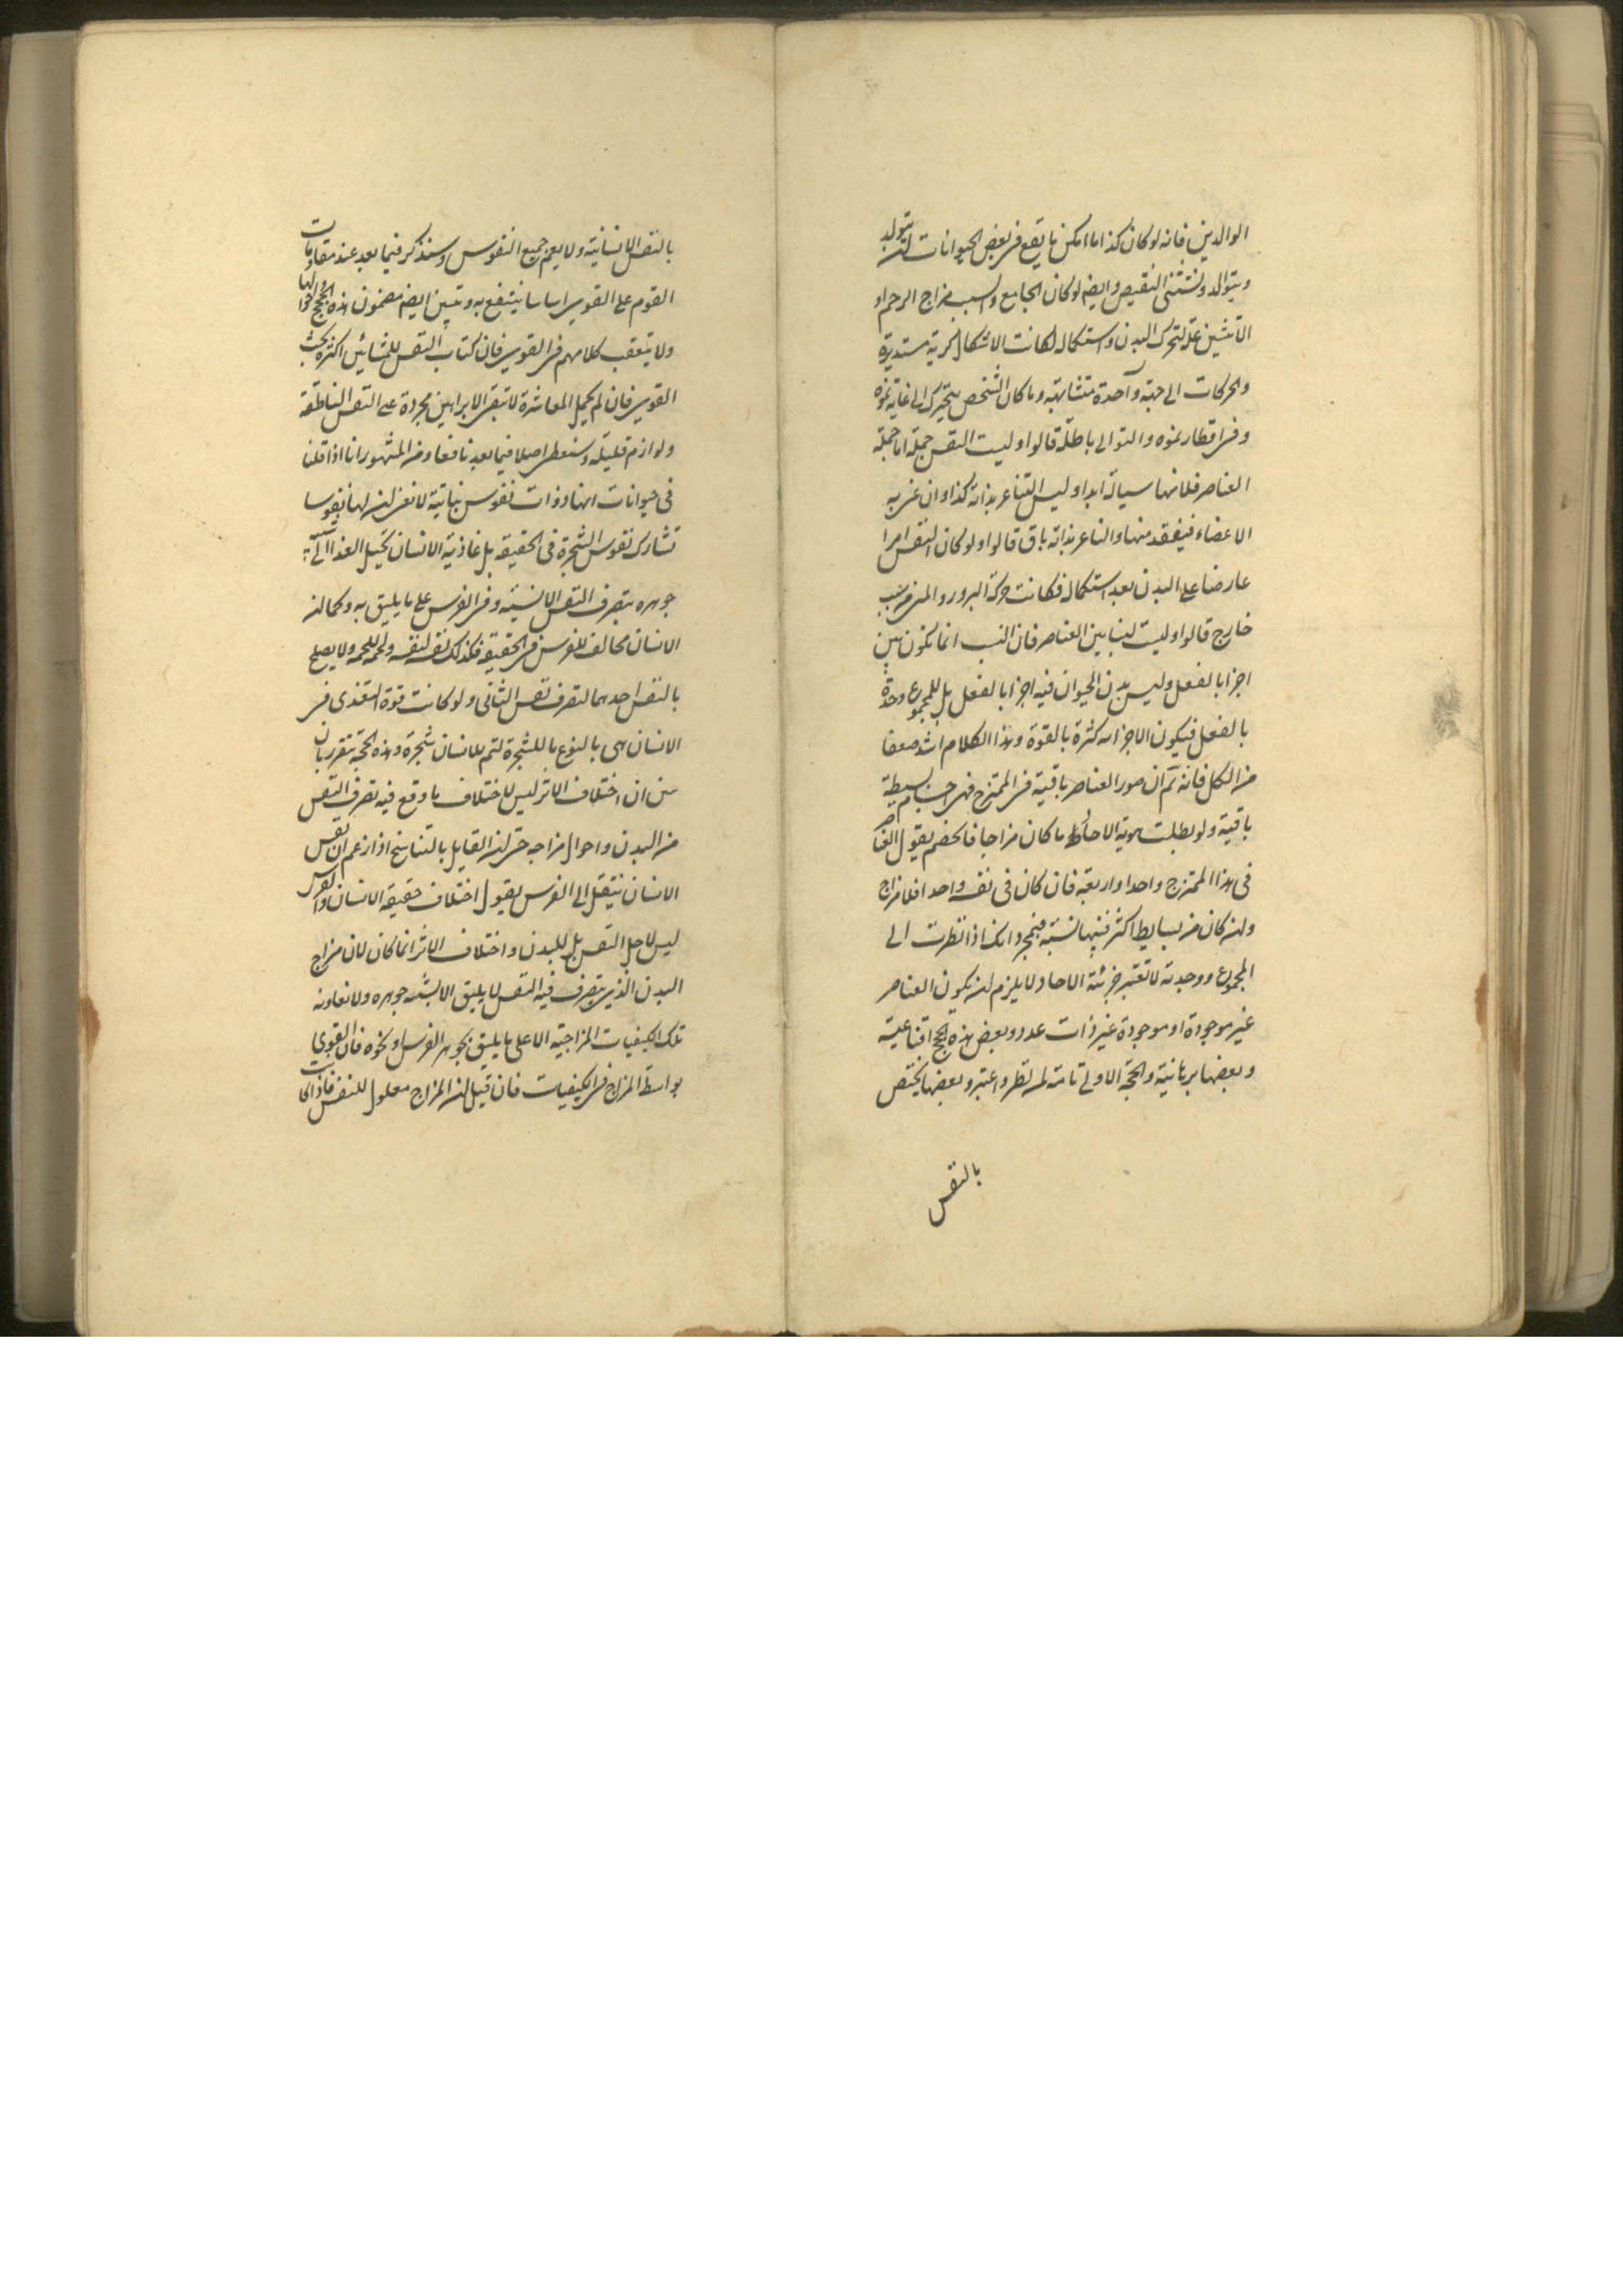 الوالدين فانه لو كان كذا ما امكن ما يقع فى بعض الحيوانات ان يتولد
ويتوالد ونستثنى النقيض وايضا لو كان الجامع والسبب مزاج الرحم او
الانثيين علة لتحرك البدن واستكماله لكانت الاشكال كرية مستديرة
والحركات الى جهة واحدة متشابهة وما كان الشخص يتحرك الى غاية نموه
وفى اقطار نموه والتوالى باطلة قالوا وليست النفس جملة اما جملة
العناصر فلانها سيالة ابدا وليس الشاعر بذاته كذا وان عنى به
الاعضاء فيفقد منها والشاعر بذاته باق قالوا ولو كان النفس امرا
عارضا على البدن بعد استكماله فكانت حركة البرور والمنى من سبب
خارج قالوا وليست نسبا بين العناصر فان النسب انما تكون بين
اجزا بالفعل وليس بدن الحيوان فيه اجزا بالفعل بل للمجموع وحدة
بالفعل فيكون الاجزاء كثرة بالقوة وهذا الكلام اشد ضعفا
من الكل فانه تم ان صور العناصر باقية فى الممتزج فهى اجسام بسيطة
باقية ولو بطلت هوية الاحاد ما كان مزاجا فالخصم يقول العناصر
فى هذا الممتزج واحد او اربعة فان كان فى نفسه واحدا فلا مزاج
وان كان من بسايط اكثر فبينها نسبة فبمجرد انك اذا نظرت الى
المجموع ووحدته لا تعتبر جزئية الاحاد لا يلزم ان يكون العناصر
غير موجودة او موجودة غير ذات عدد وبعض هذه الحجج اقناعية
وبعضها برهانية والحجة الاولى تامة لمن نظر واعتبر وبعضها يختص
بالنفس
بالنفس الانسانية ولا يعم جميع النفوس وسنذكر فيما بعد عند مقاومات
القوم على القوى اساسا ينتفع به ويتبين ايضا مضمون هذه الحجج واحوالها
ولا يتعقب كلامهم فى القوى فان كتاب النفس للمشائين اكثره بحث
القوى فان لم يحمل المعاشرة لا تبقى الا براهين مجردة على النفس الناطقة
ولوازم قليلة وسنعطى اصلا فيما بعد نافعا ومن المشهور انا اذا قلنا
فى حيوانات انها ذوات نفوس نباتية لا نعنى ان لها نفوسا
تشارك نفوس الشجرة فى الحقيقة بل غاذية الانسان تحيل الغذا الى شبيه
جوهره بتصرف النفس الانسية وفى الفرس على ما يليق به وكما ان
الانسان مخالف للفرس فى الحقيقة فكذلك نفسه لنفسه ولحمه للحمه ولا يصلح
بالنفس احدهما لتصرف نفس الثانى ولو كانت قوة التغذى فى
الانسان هى بالنوع ما للشجرة لتم للانسان شجرة وهذه الحجة يتقرر بان
يبين ان اختلاف الاثر ليس لاختلاف ما وقع فيه تصرف النفس
من البدن واحوال مزاجه حتى ان القايل بالتناسخ اذا زعم ان نفس
الانسان ينتقل الى الفرس يقول اختلاف حقيقة الانسان والفرس
ليس لاجل النفس بل للبدن واختلاف الاثر انما كان لان مزاج
البدن الذى يتصرف فيه النفس لا يليق الا بشبه جوهره ولا تعاونه
تلك الكيفيات المزاجية الا على ما يليق بجوهر الفرس او نحوه فان القوى
بواسطة المزاج فى الكيفيات فان قيل ان المزاج معلول للنفس فاذا كانت